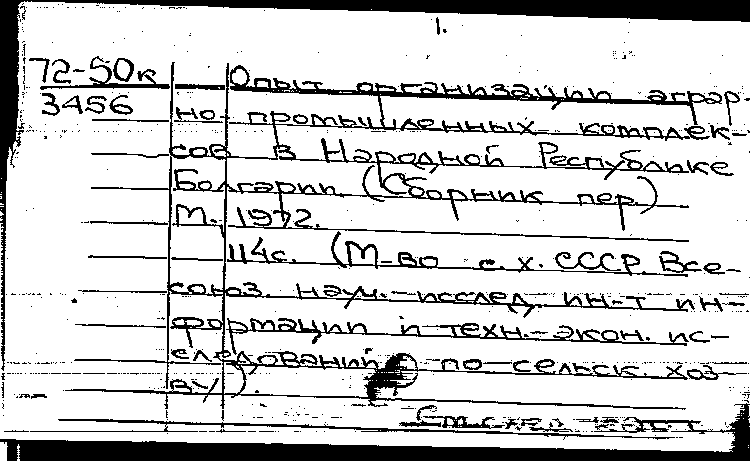 1.
72-50к Опыт организации аграр-
3456 но-промышленных комплек-
сов в Народной Республике
Болгарии. (Сборник пер.)
М., 1972.
114с. (М-во с.х. СССР. Все-
союз. науч.-исслед. ин-т ин-
формации и техн.-экон. ис-
следований по сельск. хоз-
ву).
См. след. карт.